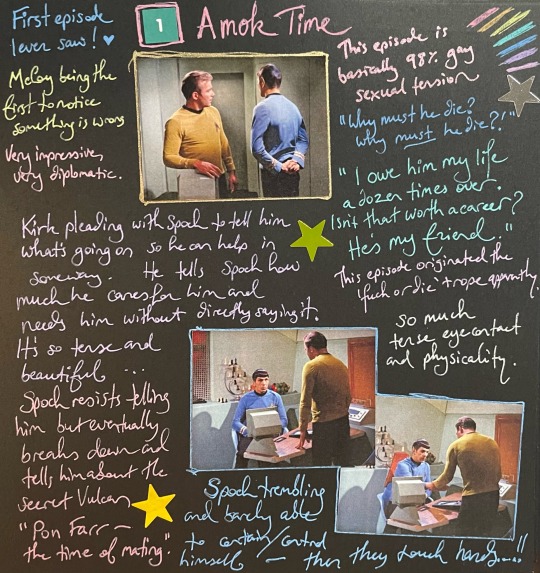 First episode
I ever saw! ♥
1
Amok Time
McCoy being the
first to notice
something is wrong
Very impressive,
very diplomatic.
This episode is
basically 98% gay
sexual tension
"Why must he die?
why must he die?!"
"I owe him my life
a dozen times over.
Isn't that worth a career?
He's my friend."
This episode originated the
'fuck or die' trope apparently.
so much
tense eye contact
and physicality.
Kirk pleading with Spock to tell him
what's going on so he can help in
some way. He tells Spock how
much he cares for him and
needs him without directly saying it.
It's so tense and
beautiful ....
Spock resists telling
him but eventually
breaks down and
tells him about the
secret Vulcan
"Pon Farr –
the time of mating".
Spock trembling
and barely able
to contain/control
himself – then they touch hands....!!